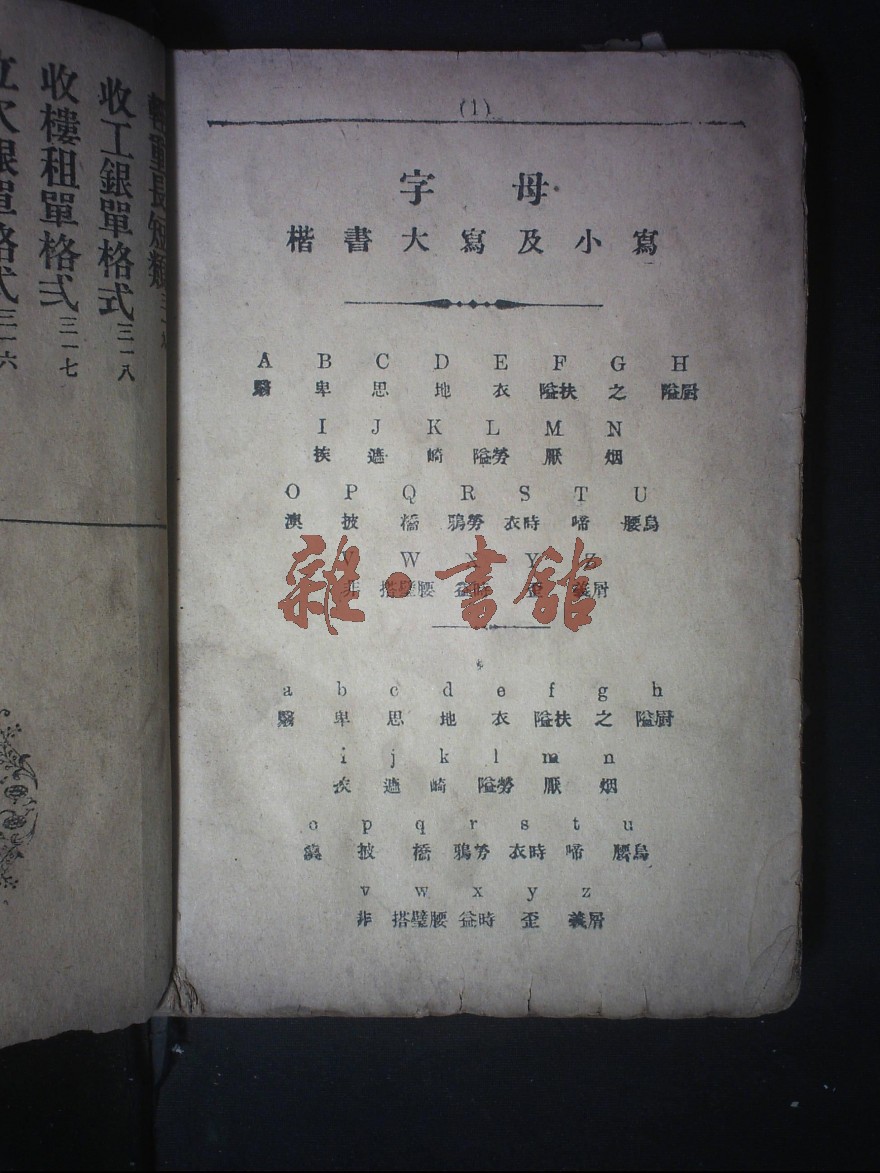 收工銀單格式 三一八
收樓租單格式 三一七
(1)
字 母
楷 書 大 寫 及 小 寫
A B C D E F G H
翳 卑 思 地 衣 隘扶 之 隘厨
I J K L M N
挨 遮 崎 隘勞 厭 烟
O P Q R S T U
澳 披 橋 鴉勞 衣時 啼 腰烏
V W X Y Z
非 搭璧腰 益時 歪 義屑
雜·書館
a b c d e f g h
翳 卑 思 地 衣 隘扶 之 隘厨
i j k l m n
挨 遮 崎 隘勞 厭 烟
o p q r s t u
披 橋 鴉勞 衣時 啼 腰烏
v w x y z
非 搭璧腰 益時 歪 義屑